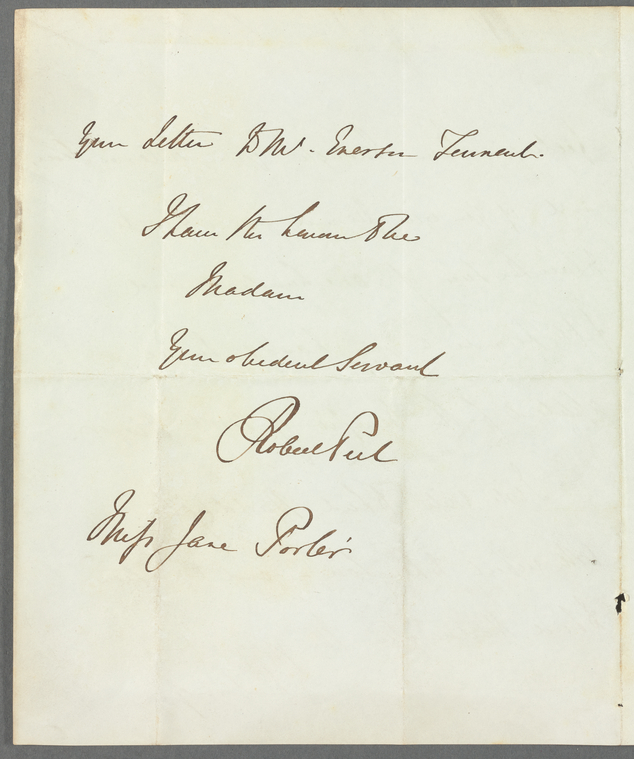 your Letter to Mr. Emerson Tennent.
I have the honour to be
Madam
Your obedient Servant
Robert Peel
Miss Jane Porter